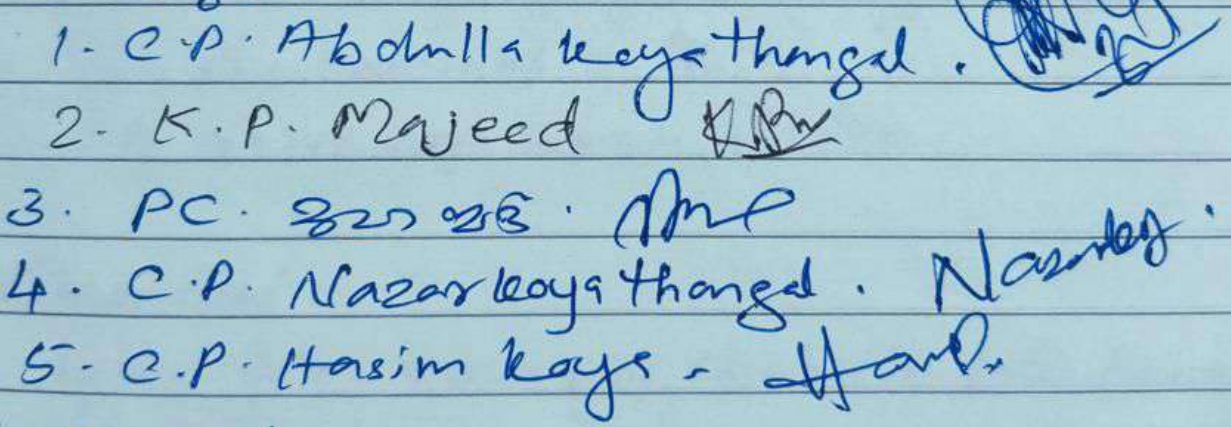 1. C.P. Abdulla koya thangal.
2. K.P. Majeed
3. PC.
4. C.P. Nazar koya thangal. Nazarkoy
5. C.P. Hasim koya -